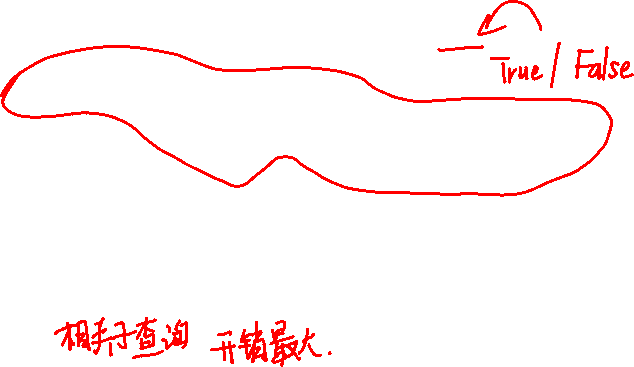 True/False
相关子查询 开销最大.